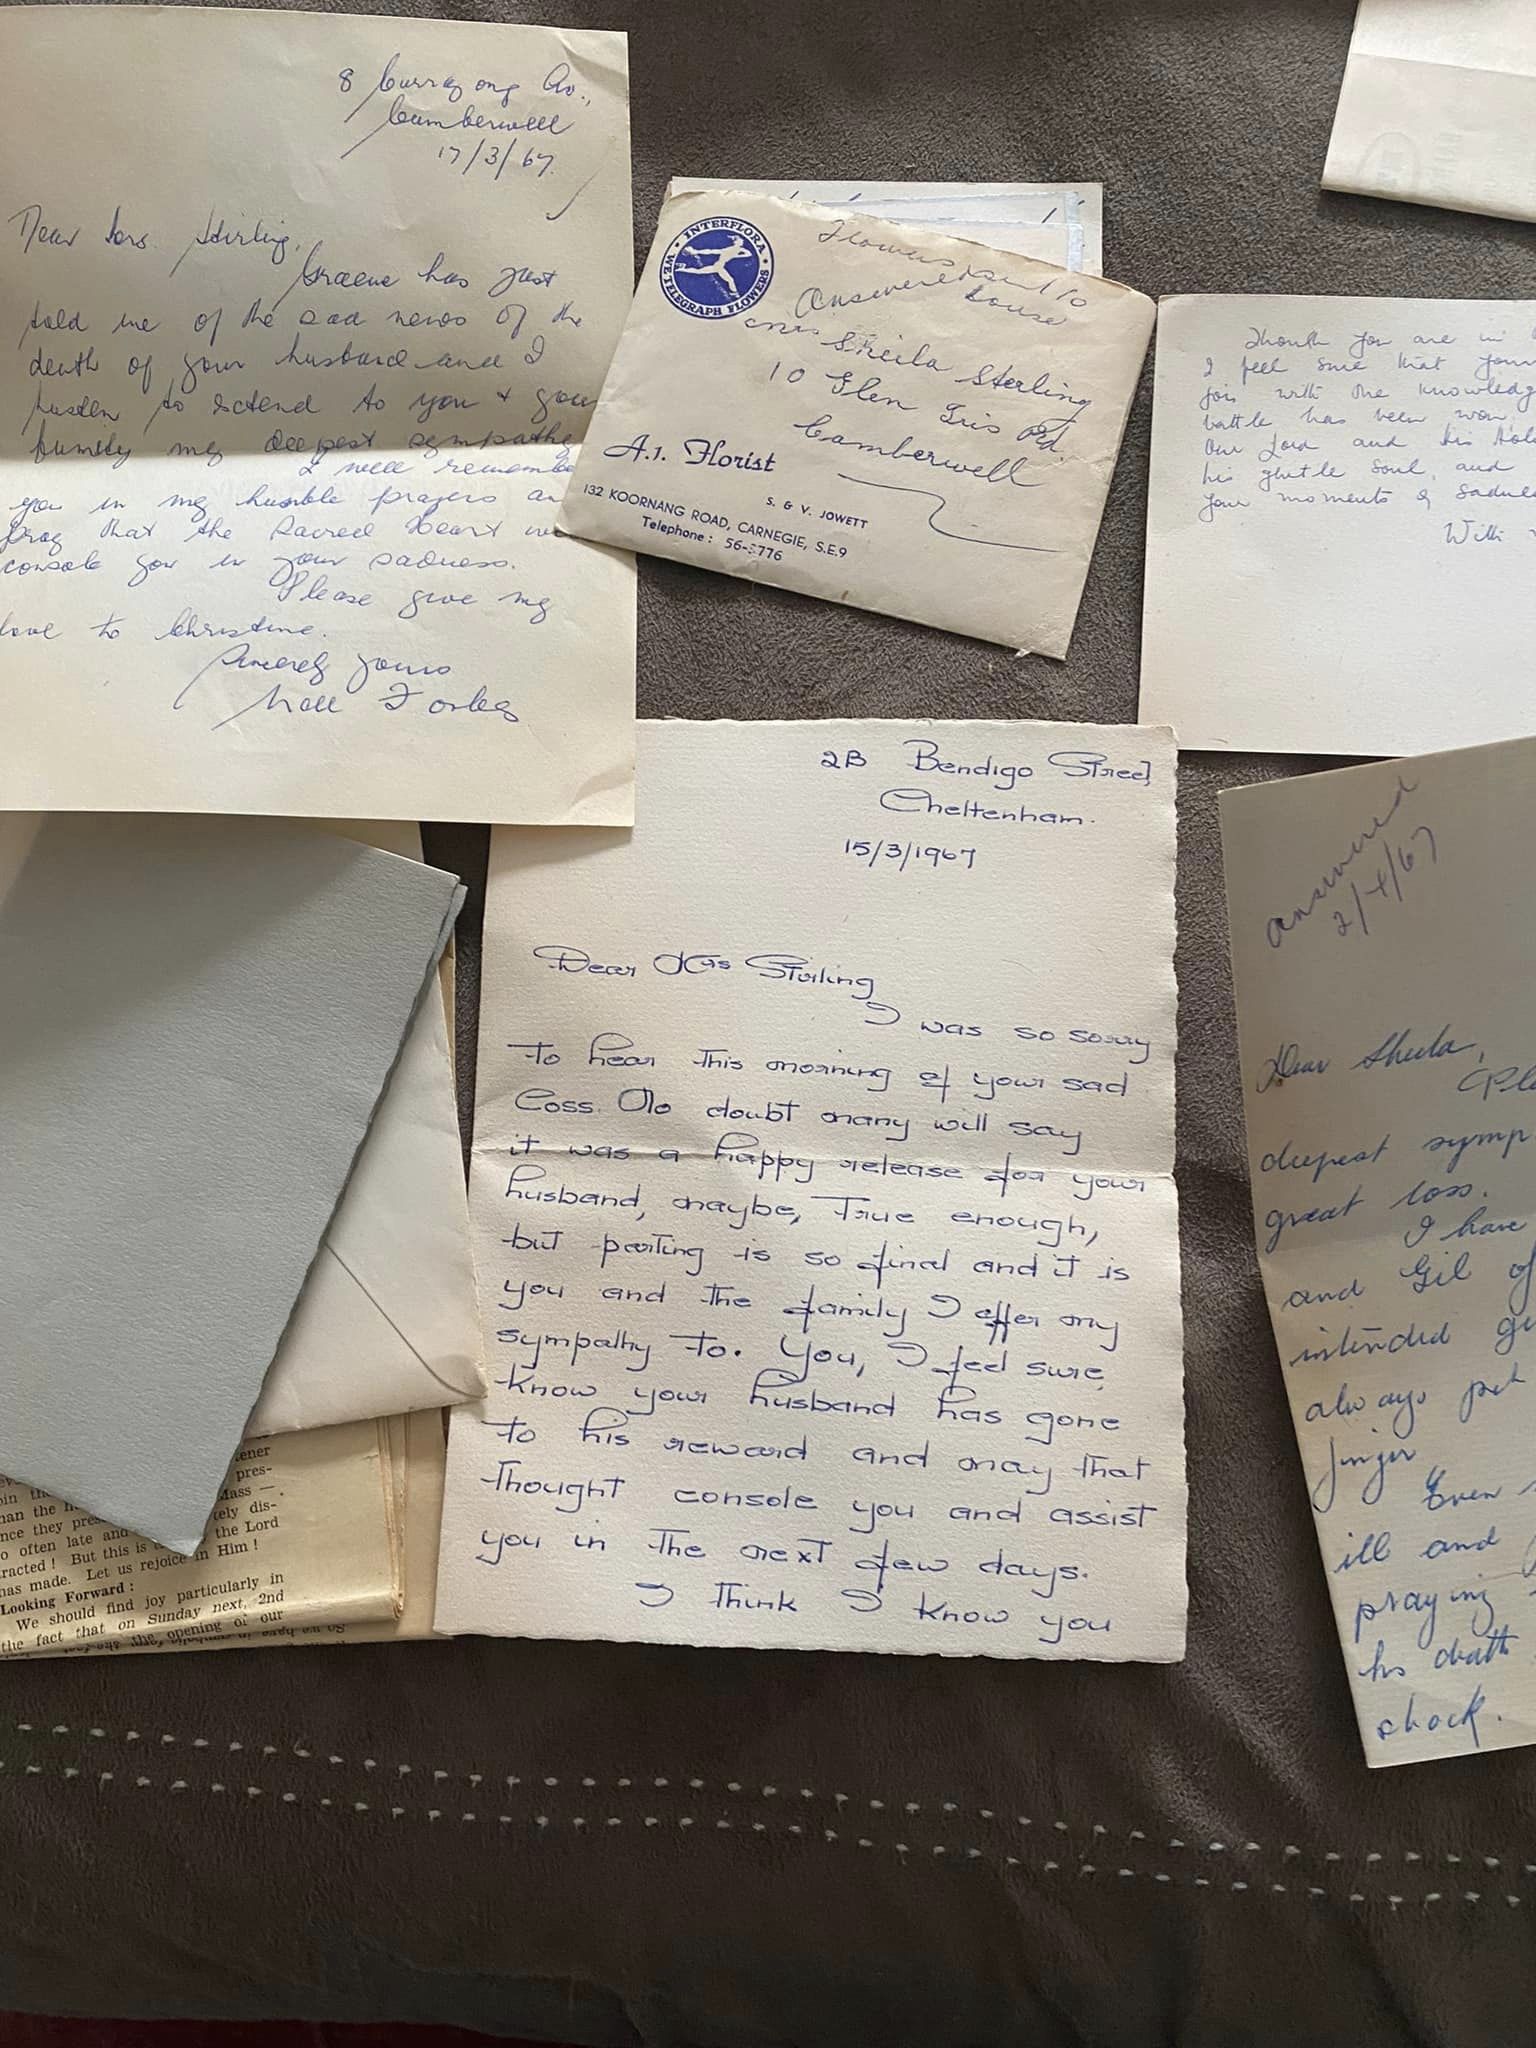 8 Currajong Av.,
Camberwell
17/3/67.
Dear Mrs. Stirling,
Graeme has just
told me of the sad news of the
death of your husband and I
hasten to extend to you & your
family my deepest sympathy
I will remembe
you in my humble prayers an
pray that the Sacred Heart wi
console you in your sadness.
Please give my
love to Christine.
Sincerely yours
Forbes
INTERFLORA
WE TELEGRAPH FLOWERS
Flowers sent to
Answered house
Mrs Sheila Sterling
10 Glen Iris Rd.
Camberwell
A.1. Florist
S. & V. JOWETT
132 KOORNANG ROAD, CARNEGIE, S.E.9
Telephone: 56-5776
Though you are in
I feel sure that your
join with the knowledg
battle has been won,
Our Lord and His Hol
his gentle soul, and
your moments of sadne
With
2B Bendigo Street,
Cheltenham.
15/3/1967
Dear Mrs Stirling
I was so sorry
to hear this morning of your sad
loss. No doubt many will say
it was a happy release for your
husband, maybe, True enough,
but parting is so final and it is
you and the family I offer my
sympathy to. You, I feel sure,
know your husband has gone
to his reward and may that
thought console you and assist
you in the next few days.
I think I know you
answered
2/4/67
Dear Sheila,
deepest symp
great loss.
I have
and Gil of
intended
always put
finger
Even
ill and
praying
his death
shock.
tener
pres-
Mass —.
than the
once they pres tely dis-
o often late and the Lord
racted! But this is
has made. Let us rejoice in Him!
Looking Forward:
We should find joy particularly in
the fact that on Sunday next, 2nd
the opening of our